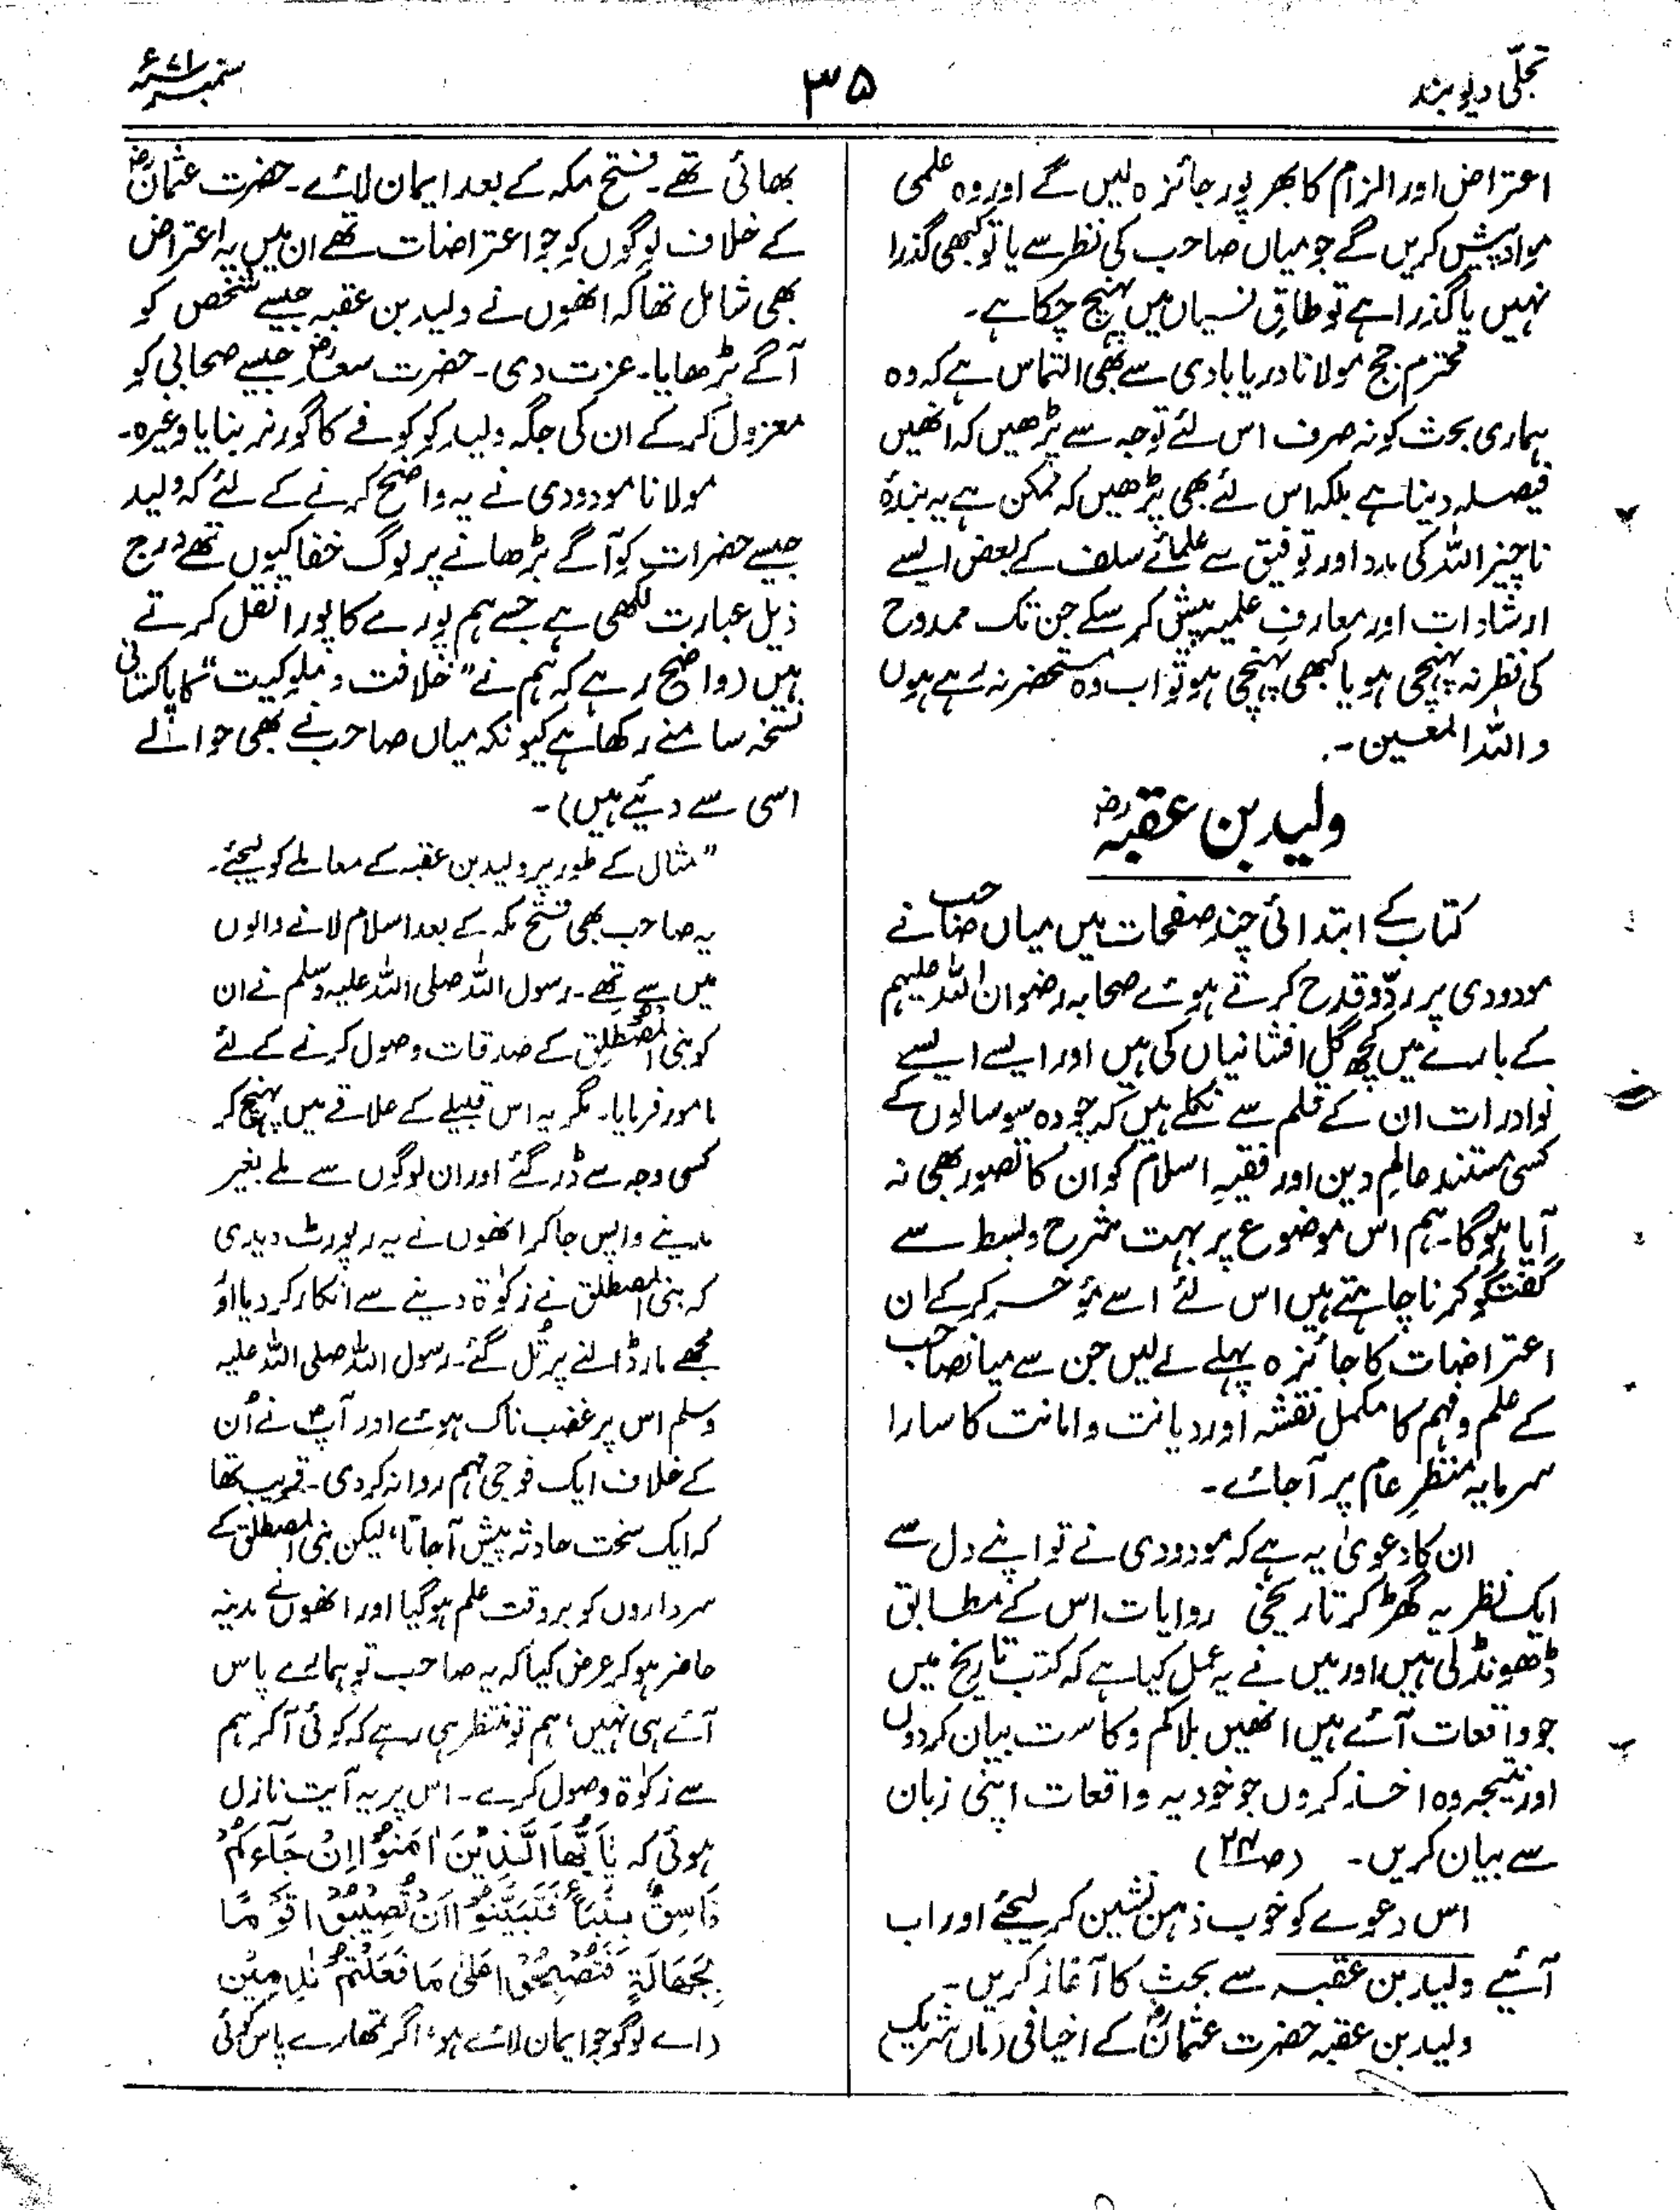 تجلّی دیوبند
۳۵
ستمبر ۷۱ء
اعتراض اور الزام کا بھرپور جائزہ لیں گے اور وہ علمی
مواد پیش کریں گے جو میاں صاحب کی نظر سے یا تو کبھی گذرا
نہیں یا گذرا ہے تو طاقِ نسیاں میں پہنچ چکا ہے۔
محترم جج مولانا دریابادی سے بھی التماس ہے کہ وہ
ہماری بحث کو نہ صرف اس لئے توجہ سے پڑھیں کہ انھیں
فیصلہ دینا ہے بلکہ اس لئے بھی پڑھیں کہ ممکن ہے یہ بندۂ
ناچیز اللہ کی مدد اور توفیق سے علمائے سلف کے بعض ایسے
ارشادات اور معارفِ علمیہ پیش کر سکے جن تک ممدوح
کی نظر نہ پہنچی ہو یا کبھی پہنچی ہو تو اب وہ مستحضر نہ رہے ہوں
واللہ المعین۔
ولید بن عقبہؓ
کتاب کے ابتدائی چند صفحات میں میاں صاحب نے
مودودی پر ردّ و قدح کرتے ہوئے صحابہ رضوان اللہ علیہم
کے بارے میں کچھ گل افشانیاں کی ہیں اور ایسے ایسے
نوادرات ان کے قلم سے نکلے ہیں کہ چودہ سو سالوں کے
کسی مستند عالمِ دین اور فقیہِ اسلام کو ان کا تصور بھی نہ
آیا ہوگا۔ ہم اس موضوع پر بہت شرح و بسط سے
گفتگو کرنا چاہتے ہیں اس لئے اسے مؤخر کر کے ان
اعتراضات کا جائزہ پہلے لے لیں جن سے میاں صاحب
کے علم و فہم کا مکمل نقشہ اور دیانت و امانت کا سارا
سرمایہ منظرِ عام پر آجائے۔
ان کا دعویٰ یہ ہے کہ مودودی نے تو اپنے دل سے
ایک نظریہ گھڑ کر تاریخی روایات اس کے مطابق
ڈھونڈ لی ہیں اور میں نے یہ عمل کیا ہے کہ کتب تاریخ میں
جو واقعات آئے ہیں انھیں بلا کم و کاست بیان کردوں
اور نتیجہ وہ اخذ کروں جو خود یہ واقعات اپنی زبان
سے بیان کریں۔ (ص۲۴)
اس دعوے کو خوب ذہن نشین کر لیجئے اور اب
آئیے ولید بن عقبہ سے بحث کا آغاز کریں۔
ولید بن عقبہ حضرت عثمانؓ کے اخیافی (ماں شریک)
بھائی تھے۔ فتح مکہ کے بعد ایمان لائے۔ حضرت عثمانؓ
کے خلاف لوگوں کو جو اعتراضات تھے ان میں یہ اعتراض
بھی شامل تھا کہ انھوں نے ولید بن عقبہ جیسے شخص کو
آگے بڑھایا۔ عزت دی۔ حضرت سعدؓ جیسے صحابی کو
معزول کر کے ان کی جگہ ولید کو کوفے کا گورنر بنایا وغیرہ۔
مولانا مودودی نے یہ واضح کرنے کے لئے کہ ولید
جیسے حضرات کو آگے بڑھانے پر لوگ خفا کیوں تھے درج
ذیل عبارت لکھی ہے جسے ہم پورے کا پورا نقل کرتے
ہیں (واضح رہے کہ ہم نے "خلافت و ملوکیت" کا پاکستانی
نسخہ سامنے رکھا ہے کیونکہ میاں صاحب نے بھی حوالے
اسی سے دیئے ہیں)۔
"مثال کے طور پر ولید بن عقبہ کے معاملے کو لیجئے۔
یہ صاحب بھی فتح مکہ کے بعد اسلام لانے والوں
میں سے تھے۔ رسول اللہ صلی اللہ علیہ وسلم نے ان
کو بنی المصطلق کے صدقات وصول کرنے کے لئے
مامور فرمایا۔ مگر یہ اس قبیلے کے علاقے میں پہنچ کر
کسی وجہ سے ڈر گئے اور ان لوگوں سے ملے بغیر
مدینے واپس جا کر انھوں نے یہ رپورٹ دیدی
کہ بنی المصطلق نے زکوٰۃ دینے سے انکار کر دیا اور
مجھے مار ڈالنے پر تُل گئے۔ رسول اللہ صلی اللہ علیہ
وسلم اس پر غضب ناک ہوئے اور آپؐ نے اُن
کے خلاف ایک فوجی مہم روانہ کر دی۔ قریب تھا
کہ ایک سخت حادثہ پیش آجاتا، لیکن بنی المصطلق کے
سرداروں کو بروقت علم ہوگیا اور انھوں نے مدینہ
حاضر ہو کر عرض کیا کہ یہ صاحب تو ہمارے پاس
آئے ہی نہیں، ہم تو منتظر ہی رہے کہ کوئی آکر ہم
سے زکوٰۃ وصول کرے۔ اس پر یہ آیت نازل
ہوئی کہ یٰاَیُّھَا الَّذِیْنَ اٰمَنُوْا اِنْ جَآءَکُمْ
فَاسِقٌ بِنَبَاٍ فَتَبَیَّنُوْا اَنْ تُصِیْبُوْا قَوْمًا
بِجَھَالَۃٍ فَتُصْبِحُوْا عَلٰی مَا فَعَلْتُمْ نٰدِمِیْن
(اے لوگو جو ایمان لائے ہو، اگر تمھارے پاس کوئی